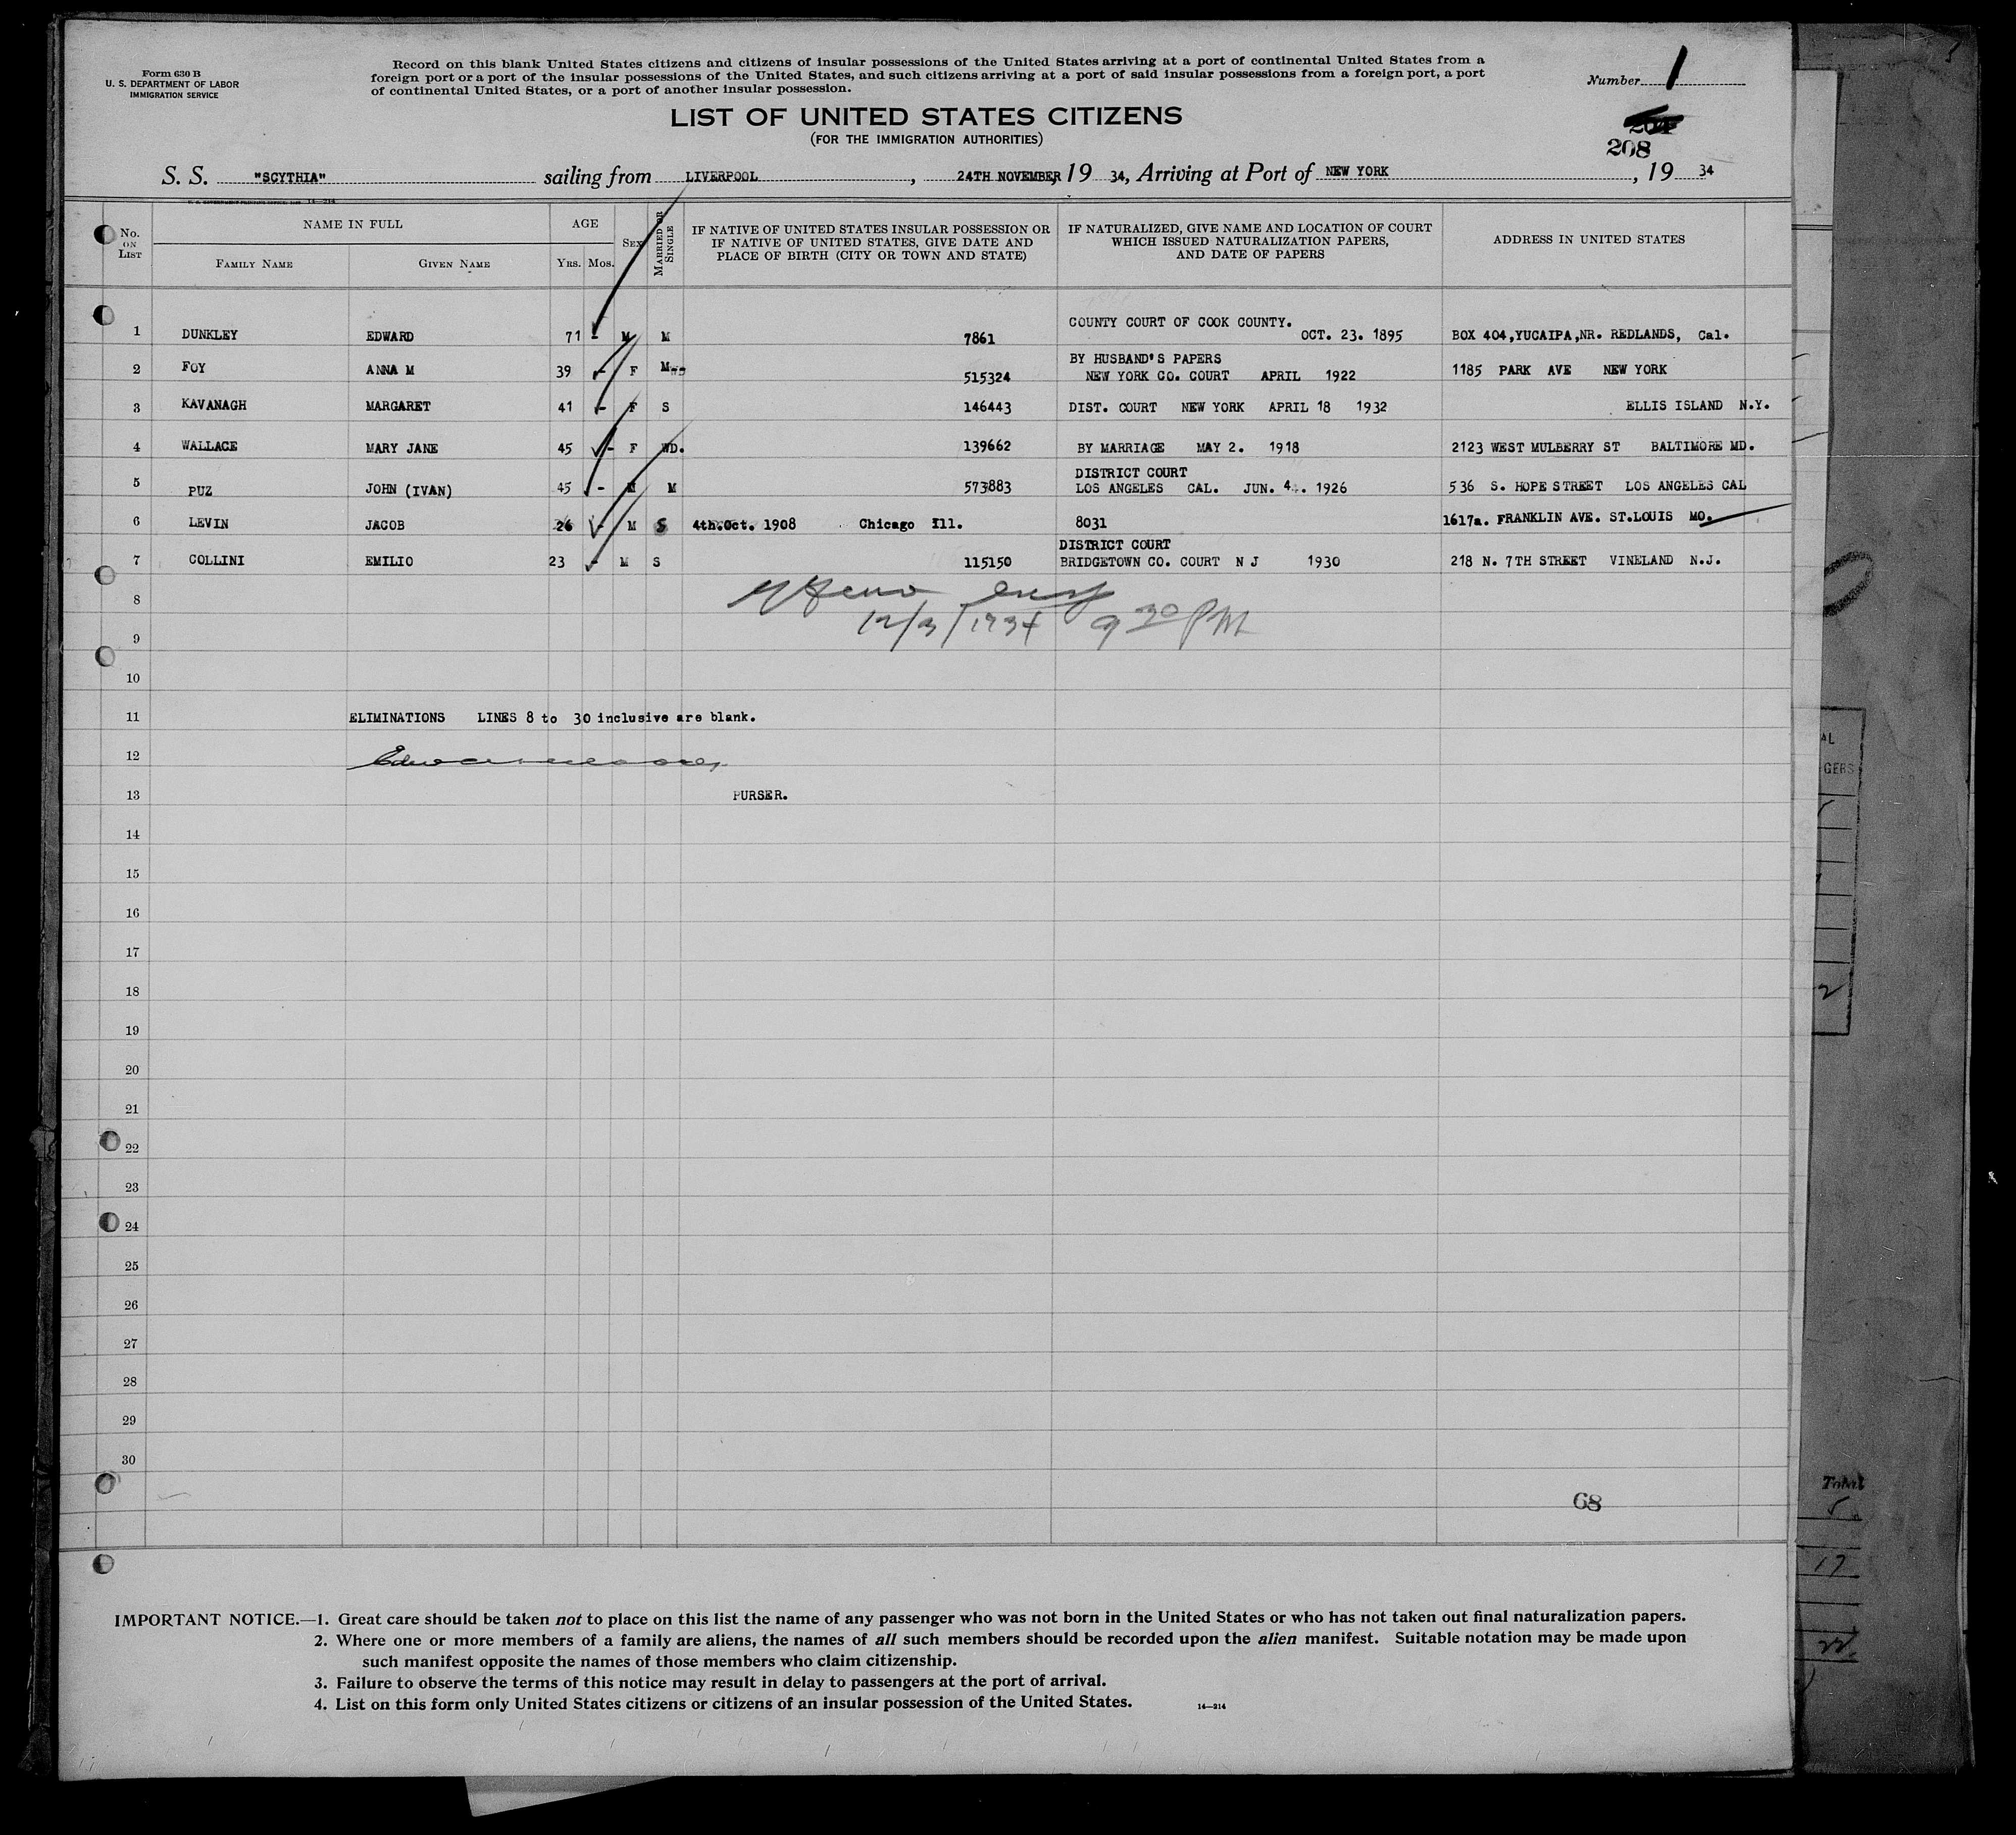 Form 630 B
U. S. DEPARTMENT OF LABOR
IMMIGRATION SERVICE
Record on this blank United States citizens and citizens of insular possessions of the United States arriving at a port of continental United States from a
foreign port or a port of the insular possessions of the United States, and such citizens arriving at a port of said insular possessions from a foreign port, a port
of continental United States, or a port of another insular possession.
Number 1
LIST OF UNITED STATES CITIZENS
(FOR THE IMMIGRATION AUTHORITIES)
208
S. S. "SCYTHIA" sailing from LIVERPOOL, 24TH NOVEMBER, 19 34, Arriving at Port of NEW YORK, 19 34
No. ON LIST
NAME IN FULL
FAMILY NAME
GIVEN NAME
AGE
YRS. MOS.
SEX
MARRIED OR SINGLE
IF NATIVE OF UNITED STATES INSULAR POSSESSION OR
IF NATIVE OF UNITED STATES, GIVE DATE AND
PLACE OF BIRTH (CITY OR TOWN AND STATE)
IF NATURALIZED, GIVE NAME AND LOCATION OF COURT
WHICH ISSUED NATURALIZATION PAPERS,
AND DATE OF PAPERS
ADDRESS IN UNITED STATES
1 DUNKLEY EDWARD 71 - M M 7861 COUNTY COURT OF COOK COUNTY. OCT. 23. 1895 BOX 404,YUCAIPA,NR. REDLANDS, Cal.
2 FOY ANNA M 39 - F M 515324 BY HUSBAND'S PAPERS NEW YORK CO. COURT APRIL 1922 1185 PARK AVE NEW YORK
3 KAVANAGH MARGARET 41 - F S 146443 DIST. COURT NEW YORK APRIL 18 1932 ELLIS ISLAND N.Y.
4 WALLACE MARY JANE 45 - F WD. 139662 BY MARRIAGE MAY 2. 1918 2123 WEST MULBERRY ST BALTIMORE MD.
5 PUZ JOHN (IVAN) 45 - M M 573883 DISTRICT COURT LOS ANGELES CAL. JUN. 4. 1926 536 S. HOPE STREET LOS ANGELES CAL
6 LEVIN JACOB 26 - M S 4th.Oct. 1908 Chicago Ill. 8031 1617a. FRANKLIN AVE. ST.LOUIS MO.
7 COLLINI EMILIO 23 - M S 115150 DISTRICT COURT BRIDGETOWN CO. COURT N J 1930 218 N. 7TH STREET VINELAND N.J.
8
12/3/1934 9 30 PM
9
10
11 ELIMINATIONS LINES 8 to 30 inclusive are blank.
12
13 PURSER.
14
15
16
17
18
19
20
21
22
23
24
25
26
27
28
29
30
68
IMPORTANT NOTICE.—1. Great care should be taken not to place on this list the name of any passenger who was not born in the United States or who has not taken out final naturalization papers.
2. Where one or more members of a family are aliens, the names of all such members should be recorded upon the alien manifest. Suitable notation may be made upon
such manifest opposite the names of those members who claim citizenship.
3. Failure to observe the terms of this notice may result in delay to passengers at the port of arrival.
4. List on this form only United States citizens or citizens of an insular possession of the United States.
14—214
AL
GERS
2
Total
5
17
22